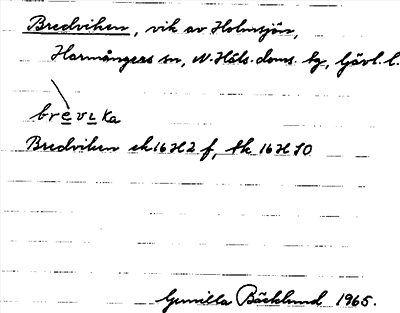 Bredviken, vik av Holmsjön,
Harmångers sn, N. Häls. doms. tg, Gävl. l.
brevıka
Bredviken ek 16H2f, tk 16H SO
Gunilla Bäcklund 1965.